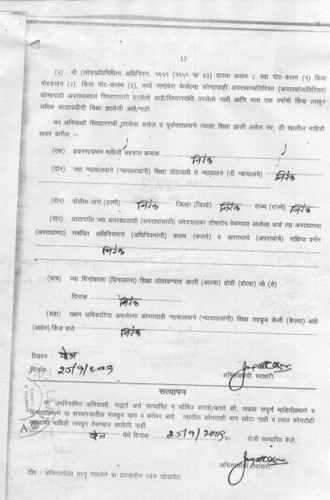 13
(२) मी (लोकप्रतिनिधित्व अधिनियम, १९५१ (१९५१ चा ४३) याच्या कलम ८ च्या पोट-कलम (१) किंवा
पोटकलम (२), किंवा पोट-कलम (३), मध्ये समावेश केलेल्या कोणत्याही अपराधाव्यतिरिक्त (अपराधांव्यतिरिक्त)
कोणत्याही अपराधाबद्दल सिध्दापराधी ठरलेलो आहे/सिध्दापराधी ठरलेलो नाही आणि मला एक वर्षाची किंवा त्याहून
अधिक कालावधीची शिक्षा झालेली आहे/नाही.
जर अभिसाक्षी सिध्दापराधी ठरलेला असेल व पूर्वोक्तप्रमाणे त्याला शिक्षा झाली असेल तर, तो खालील माहिती
सादर करील :-
(एक) प्रकरण/प्रथम माहिती अहवाल क्रमांक निरंक
(दोन) ज्या न्यायालयाने (न्यायालयांनी) शिक्षा ठोठावली ते न्यायालय (ती न्यायालये) निरंक
(तीन) पोलीस ठाणे (ठाणी) निरंक जिल्हा (जिल्हे) निरंक राज्य (राज्ये) निरंक
(चार) आतापर्यंत ज्या अपराधासाठी (अपराधांसाठी) उमेदवारावर दोषारोप ठेवण्यात आलेला आहे त्या अपराधाच्या
(अपराधांच्या) संबंधित अधिनियमाचे (अधिनियमांची) कलम (कलमे) व अपराधाचे (अपराधांचे) संक्षिप्त वर्णन
निरंक
(पाच) ज्या दिनांकाला (दिनांकांना) शिक्षा ठोठावण्यात आली (आल्या) होती (होत्या) तो (ते)
दिनांक निरंक
(सहा) सक्षम अधिकारिता असलेल्या कोणत्याही न्यायालयाने (न्यायालयांनी) शिक्षा तहकूब केली (केल्या) आहे
(आहेत) किंवा कसे निरंक
ठिकाण :
दिनांक : 25/9/2009
अभिसाक्षीची स्वाक्षरी.
सत्यापन
मी, उपरिनामित अभिसाक्षी, याद्वारे असे सत्यापित व घोषित करतो/करते की, माझ्या संपूर्ण माहितीप्रमाणे व
विश्वासाप्रमाणे या शपथपत्रातील मजकूर खरा व बरोबर आहे. त्यातील कोणताही भाग खोटा नाही व त्यात कोणतीही
महत्वाची माहिती लपवून ठेवण्यात आलेली नाही.
येथे दिनांक 25/9/2009 रोजी सत्यापित केले.
अभिसाक्षीची स्वाक्षरी.
टीप : अभिसाक्षीला लागू नसलेले या प्रपत्रातील रकाने खोडावेत.